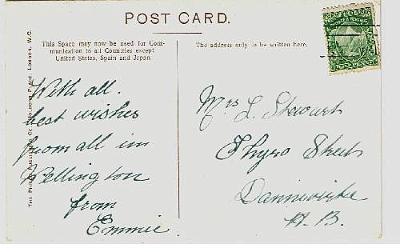 POST CARD.
This Space may now be used for Com-
munication to all Countries except
United States, Spain and Japan.
The address only is to be written here.
With all.
best wishes
from all in
Wellington
from
Emmie
Mrs L. Stewart
Thyra Street
Dannevirke
H.B.